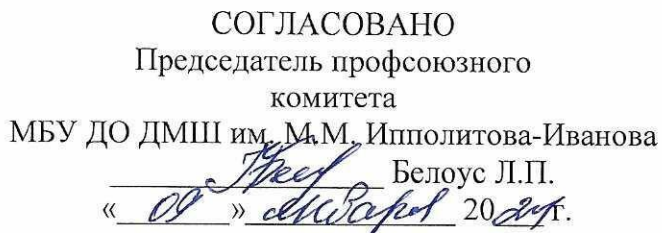 СОГЛАСОВАНО
Председатель профсоюзного
комитета
МБУ ДО ДМШ им. М.М. Ипполитова-Иванова
Белоус Л.П.
«09» января 2024г.